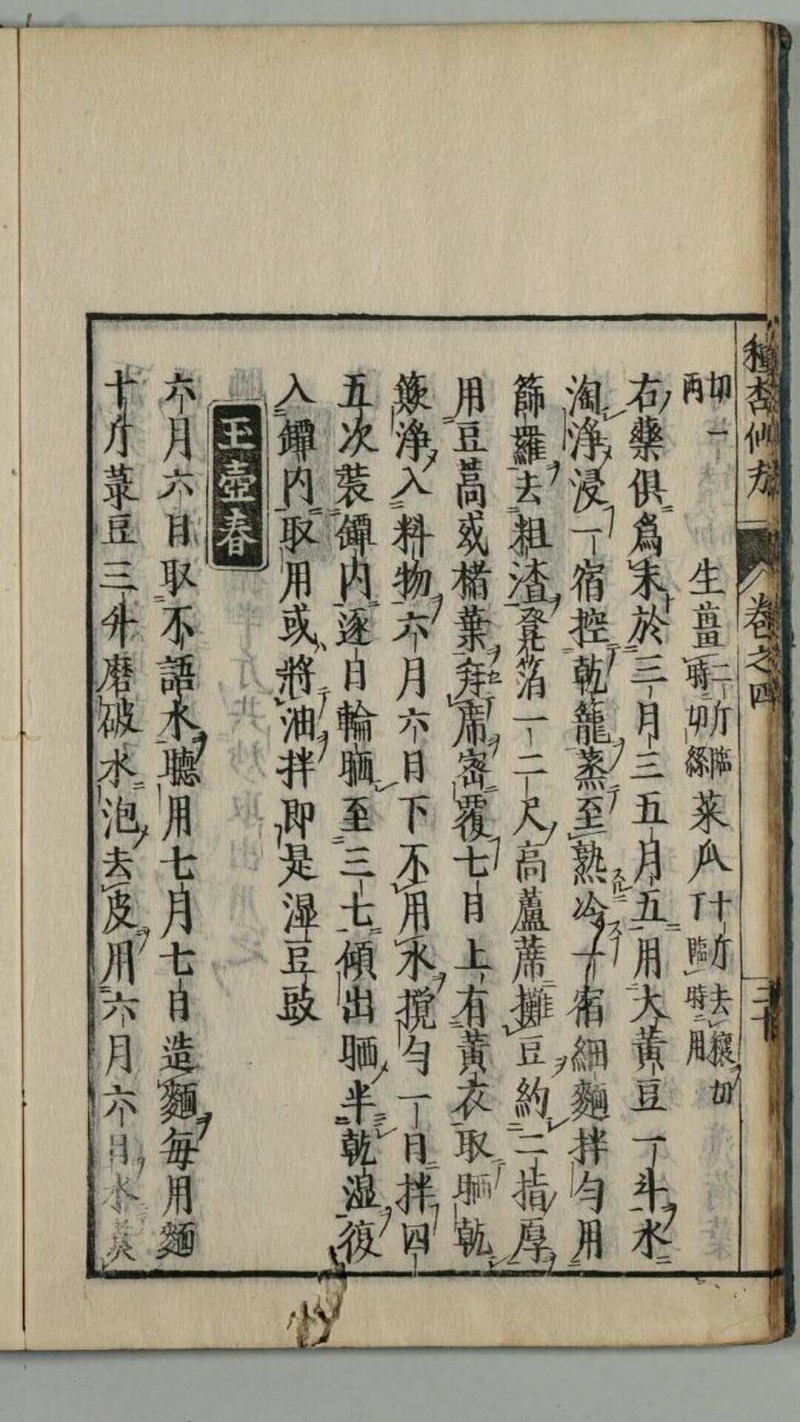 種杏仙方 卷之四 三十
切一兩 生薑二斤臨時切絲 菜瓜十斤去穰切丁臨時用
右藥俱爲末於三月三五月五用大黃豆一斗水
淘淨浸一宿控乾籠蒸至熟冷一宿細麵拌勻用
篩羅去粗渣凳箔一二尺高蘆蓆攤豆約二指厚
用豆蒿或楮葉弃席密覆七日上有黃衣取晒乾
簸淨入料物六月六日下不用水攪勻一日拌四
五次裝罈內逐日輪晒至三七傾出晒半乾濕復
入罈內取用或將油拌即是濕豆豉
玉壺春
六月六日取不語水聽用七月七日造麵每用麵
十斤菉豆三升磨破水泡去皮用六月六日水